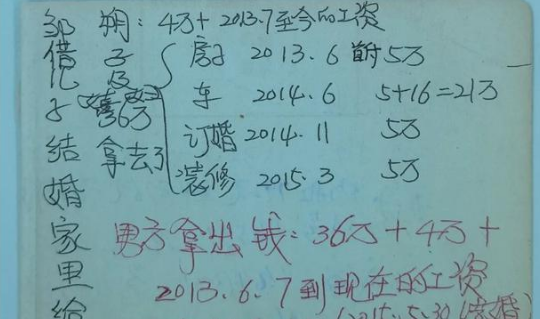 邹翔：4万+2013.7至今的工资
房子 2013.6 首付 5万
车 2014.6 5+16=21万
订婚 2014.11 5万
装修 2015.3 5万
36万
拿去了
借
子结婚家里给
男方拿出钱：36万+4万+
2013.6.7到现在的工资
(2015.5.30结婚)